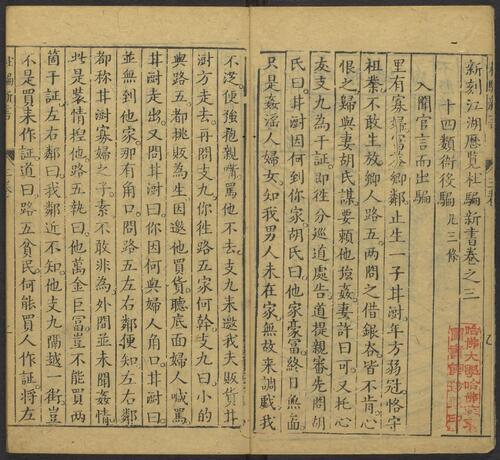 新刻江湖歷覽杜騙新書卷之三
十四類衙役騙 凡三條
入聞官言而出騙
里有寡婦富蓋鄉鄰止生一子井澍年方弱冠恪守
祖業不敢生放鄉人路五兩問之借銀各皆不肯心
恨之歸與妻胡氏謀要賴他強姦妻許曰可又托心
友支九為干証即往分巡道處告道提親審先問胡
氏曰井澍因何到你家胡氏曰他家豪富終日無面
只是姦淫人婦女知我男人未在家無故來調戲我
不從便強抱親嘴罵他不去支九來邀我夫販貨井
澍方走去再問支九你往路五家何幹支九曰小的
與路五都挑販為生因邀他買貨聽底面婦人喊罵
井澍走出又問井澍曰你因何與婦人角口井澍曰
並無到他家那有角口問路五左右鄰便知左右鄰
都称井澍寡婦之子素不敢非為外間並未聞姦情
此是裝情揑他路五執曰他萬金巨富豈不能買兩
箇干証左右鄰曰我鄰近不知他支九隔越一街豈
不是買來作証道曰路五貧民何能買人作証將左